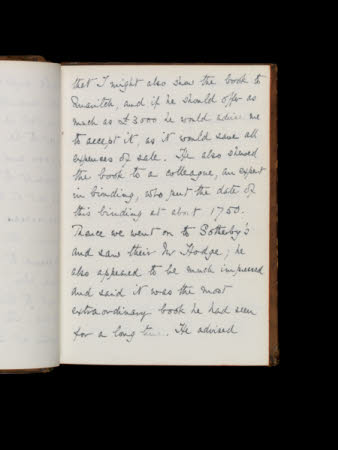 that I might also show the book to
Quaritch, and if he should offer as
much as £3000 he would advise me
to accept it, as it would save all
expenses of sale. He also showed
the book to a colleague, an expert
in binding, who put the date of
this binding at about 1750.
Thence we went on to Sotheby's
and saw their Mr Hodge; he
also appeared to be much impressed
and said it was the most
extraordinary book he had seen
for a long time. He advised